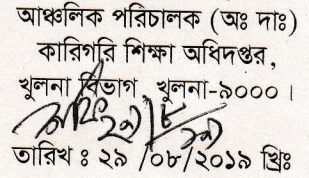 আঞ্চলিক পরিচালক (অঃ দাঃ)
কারিগরি শিক্ষা অধিদপ্তর,
খুলনা বিভাগ, খুলনা-৯০০০।
তারিখ ঃ ২৯/০৮/২০১৯ খ্রিঃ